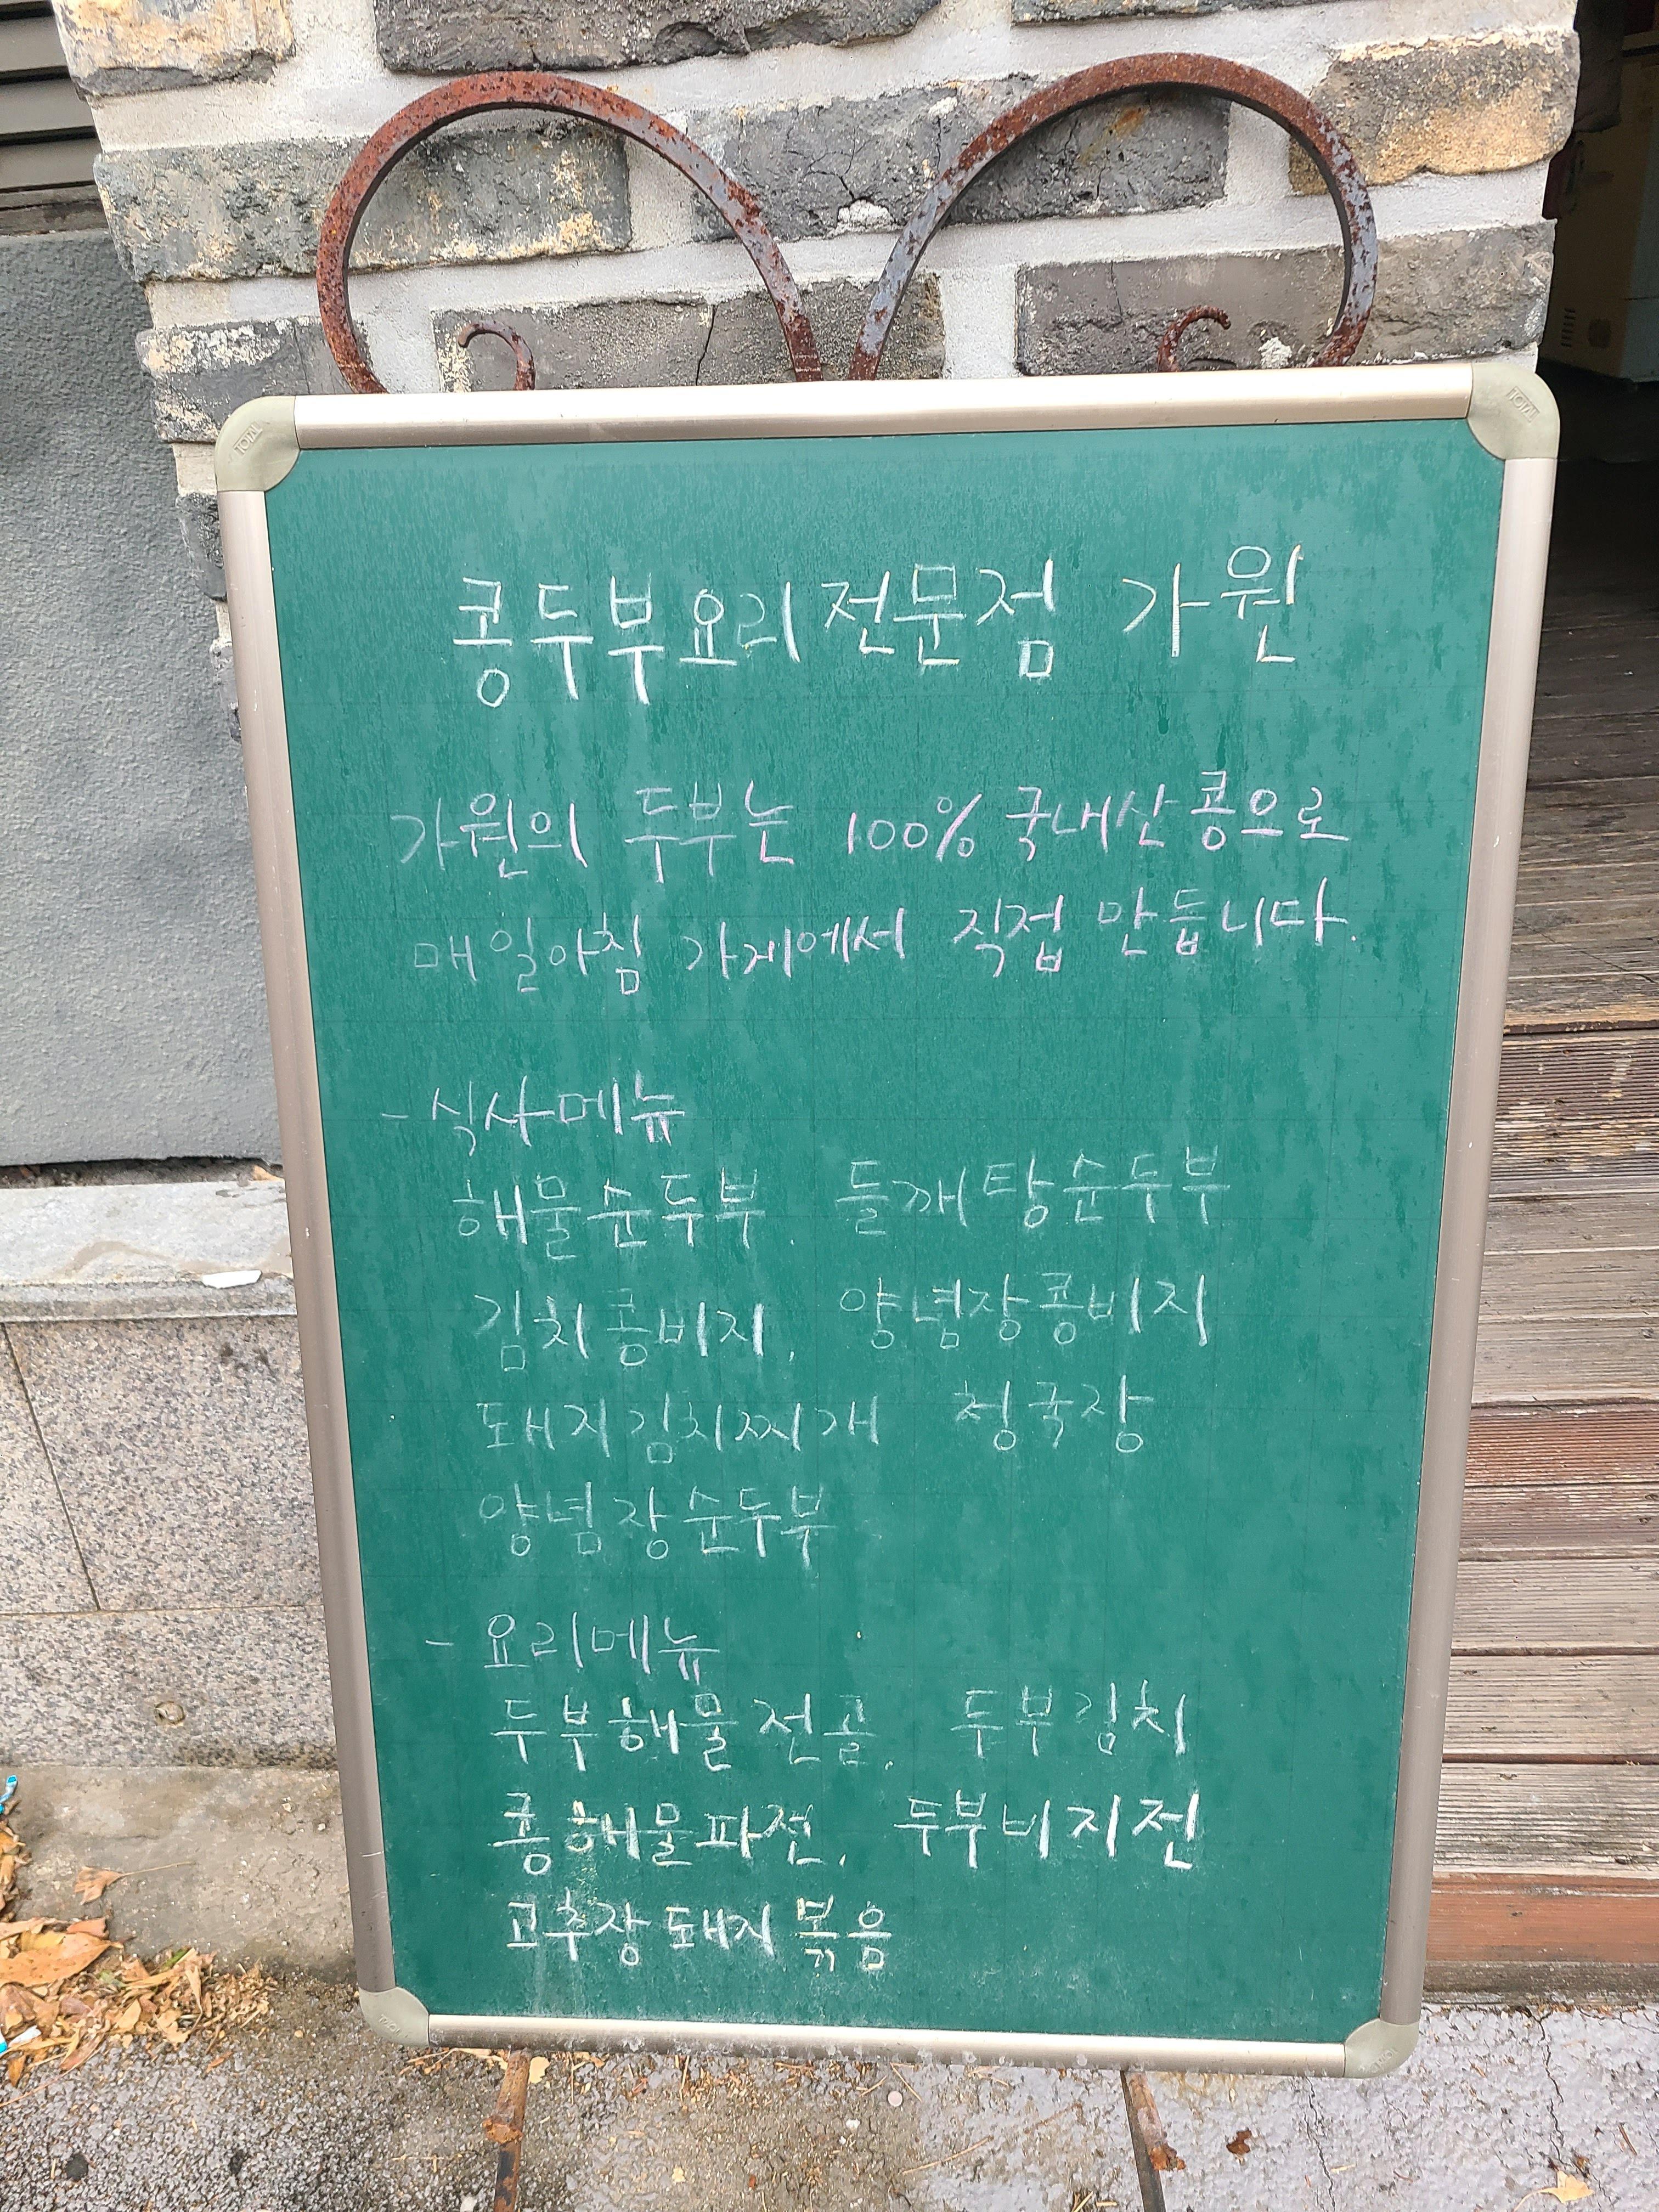 콩두부요리전문점 가원
가원의 두부는 100% 국내산콩으로
매일아침 가게에서 직접 만듭니다.
- 식사메뉴
해물순두부. 들깨탕순두부
김치콩비지. 양념장콩비지
돼지김치찌개 청국장
양념장순두부
- 요리메뉴
두부해물전골. 두부김치
콩해물파전. 두부비지전
고추장돼지볶음
TOTAL
TOTAL